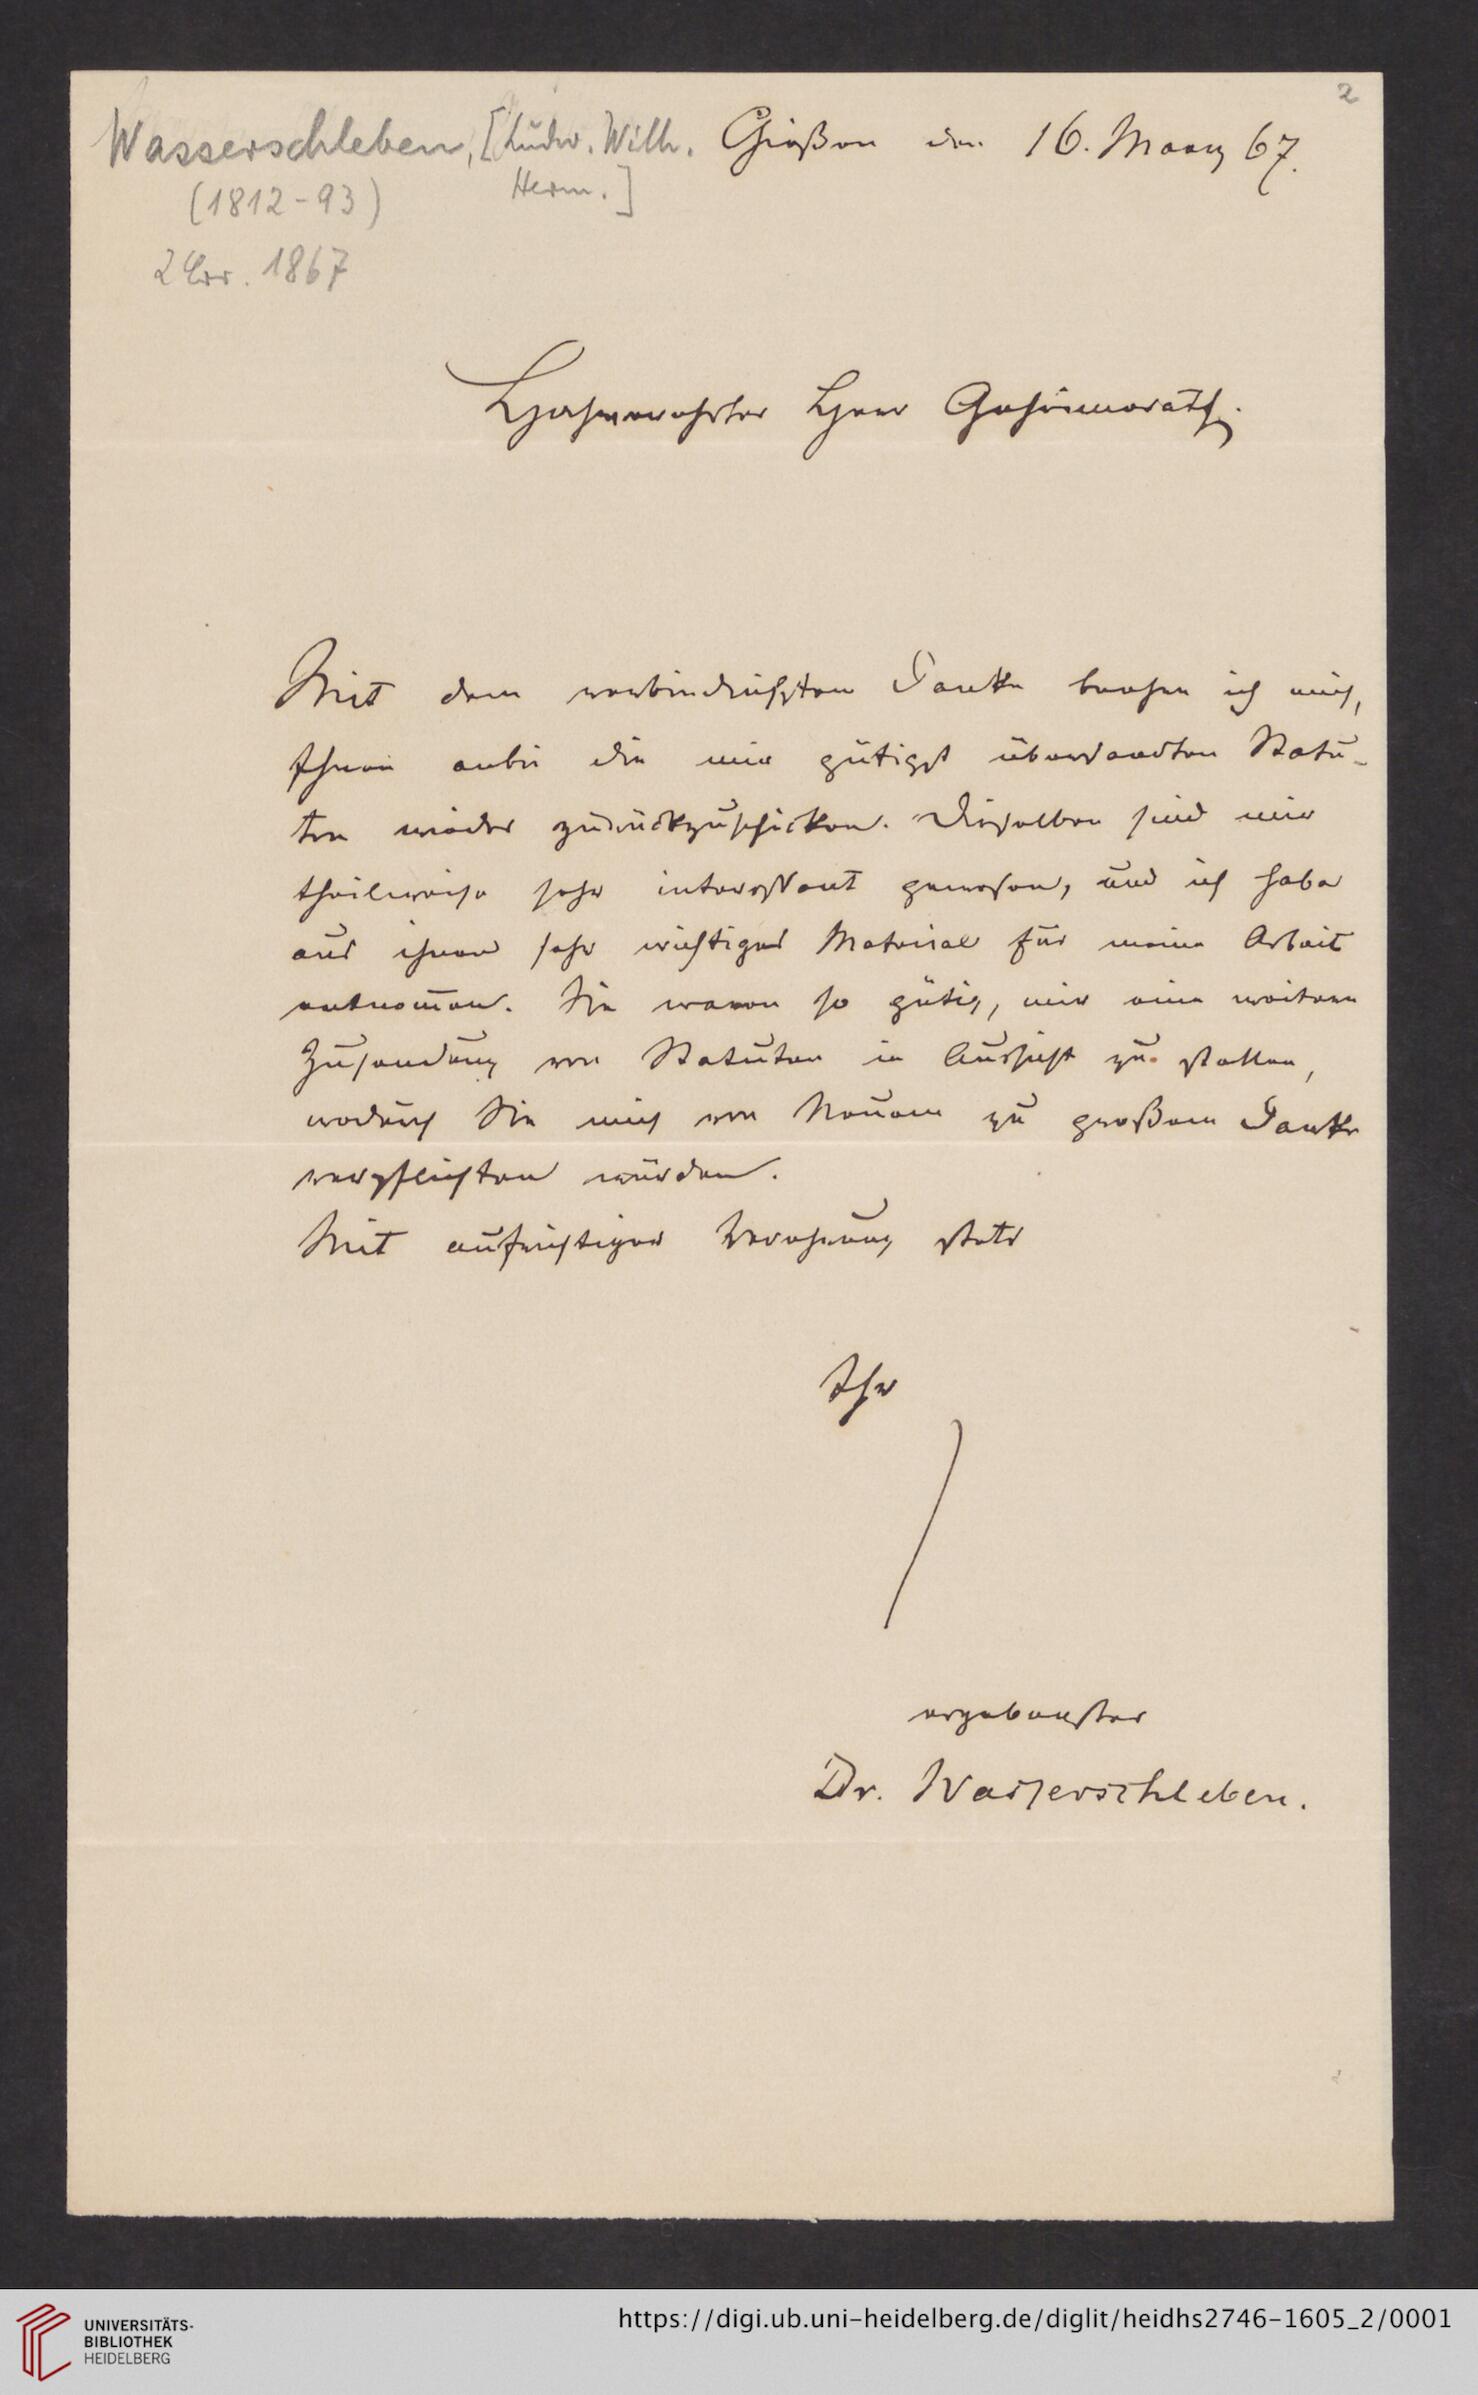 2
Wasserschleben, [Ludw. Wilh. Gießen den 16. Maerz 67.
(1812-93) Herm.]
2 Err. 1867
Hochverehrter Herr Geheimerath.
Mit dem verbindlichsten Danke beehre ich mich,
Ihnen anbei die mir gütigst übersandten Statu-
ten wieder zurückzuschicken. Dieselben sind mir
theilweise sehr interessant gewesen, und ich habe
aus ihnen sehr wichtiges Material für meine Arbeit
entnom̄en. Sie waren so gütig, mir eine weitere
Zusendung von Statuten in Aussicht zu stellen,
wodurch Sie mich von Neuem zu großem Danke
verpflichten würden.
Mit aufrichtiger Verehrung stets
Ihr
ergebenster
Dr. Wasserschleben.
UNIVERSITÄTS-
BIBLIOTHEK
HEIDELBERG
https://digi.ub.uni-heidelberg.de/diglit/heidhs2746-1605_2/0001